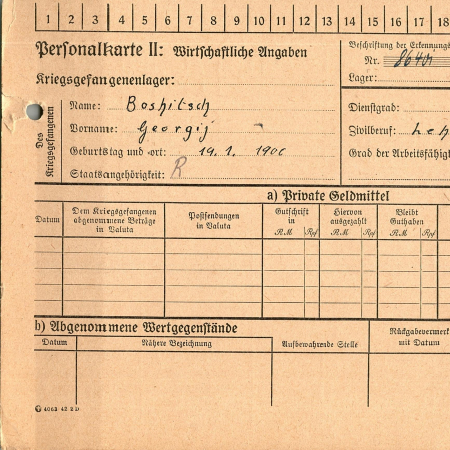 1 2 3 4 5 6 7 8 9 10 11 12 13 14 15 16 17 18
Personalkarte II: Wirtschaftliche Angaben
Beschriftung der Erkennungs
Nr. 86401
Kriegsgefangenenlager:
Lager:
Des Kriegsgefangenen
Name: Boshitsch
Dienstgrad:
Vorname: Georgij
Zivilberuf: Leh
Geburtstag und -ort: 19. 1. 190
Grad der Arbeitsfähig
Staatsangehörigkeit: R
a) Private Geldmittel
Datum
Dem Kriegsgefangenen abgenommene Beträge in Valuta
Postsendungen in Valuta
Gutschrift in
Hiervon ausgezahlt
Bleibt Guthaben
R.M. Rpf R.M. Rpf R.M. Rpf
b) Abgenommene Wertgegenstände
Datum
Nähere Bezeichnung
Aufbewahrende Stelle
Rückgabevermerk mit Datum
4063 42 2 D